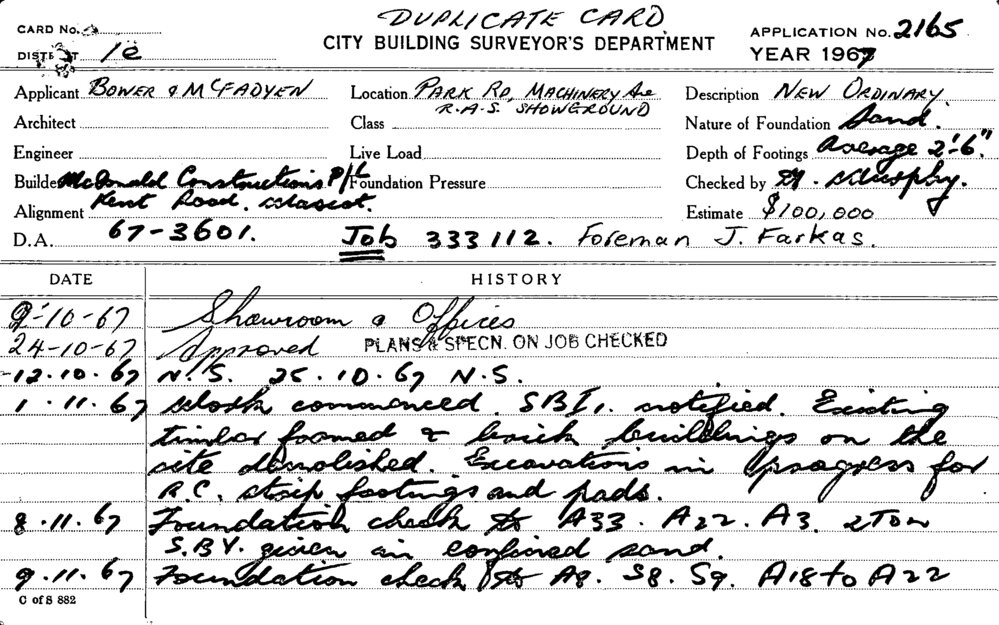 DUPLICATE CARD
CARD No.
CITY BUILDING SURVEYOR'S DEPARTMENT
APPLICATION No. 2165
DISTRICT 1e
YEAR 1967
Applicant BOWER & McFADYEN
Location PARK RD, MACHINERY Ave
R.A.S. SHOWGROUND
Description NEW ORDINARY
Architect
Class
Nature of Foundation Sand.
Engineer
Live Load
Depth of Footings Average 2'-6"
Builder McDonald Constructions P/L
Foundation Pressure
Checked by Murphy.
Alignment Kent Road. Mascot.
Estimate $100,000
D.A. 67-3601. Job 333112. Foreman J. Farkas.
DATE HISTORY
9-10-67 Showroom & Offices
24-10-67 Approved PLANS & SPECN. ON JOB CHECKED
12.10.67 N.S. 25.10.67 N.S.
1.11.67 Work commenced. S.B.I. notified. Existing
timber framed & brick buildings on the
site demolished. Excavations in progress for
R.C. strip footings and pads.
8.11.67 Foundation check A33. A22. A3. 2 Ton
S.B.V. given in confined sand.
9.11.67 Foundation check A8. S8. S9. A18 to A22
C of S 882